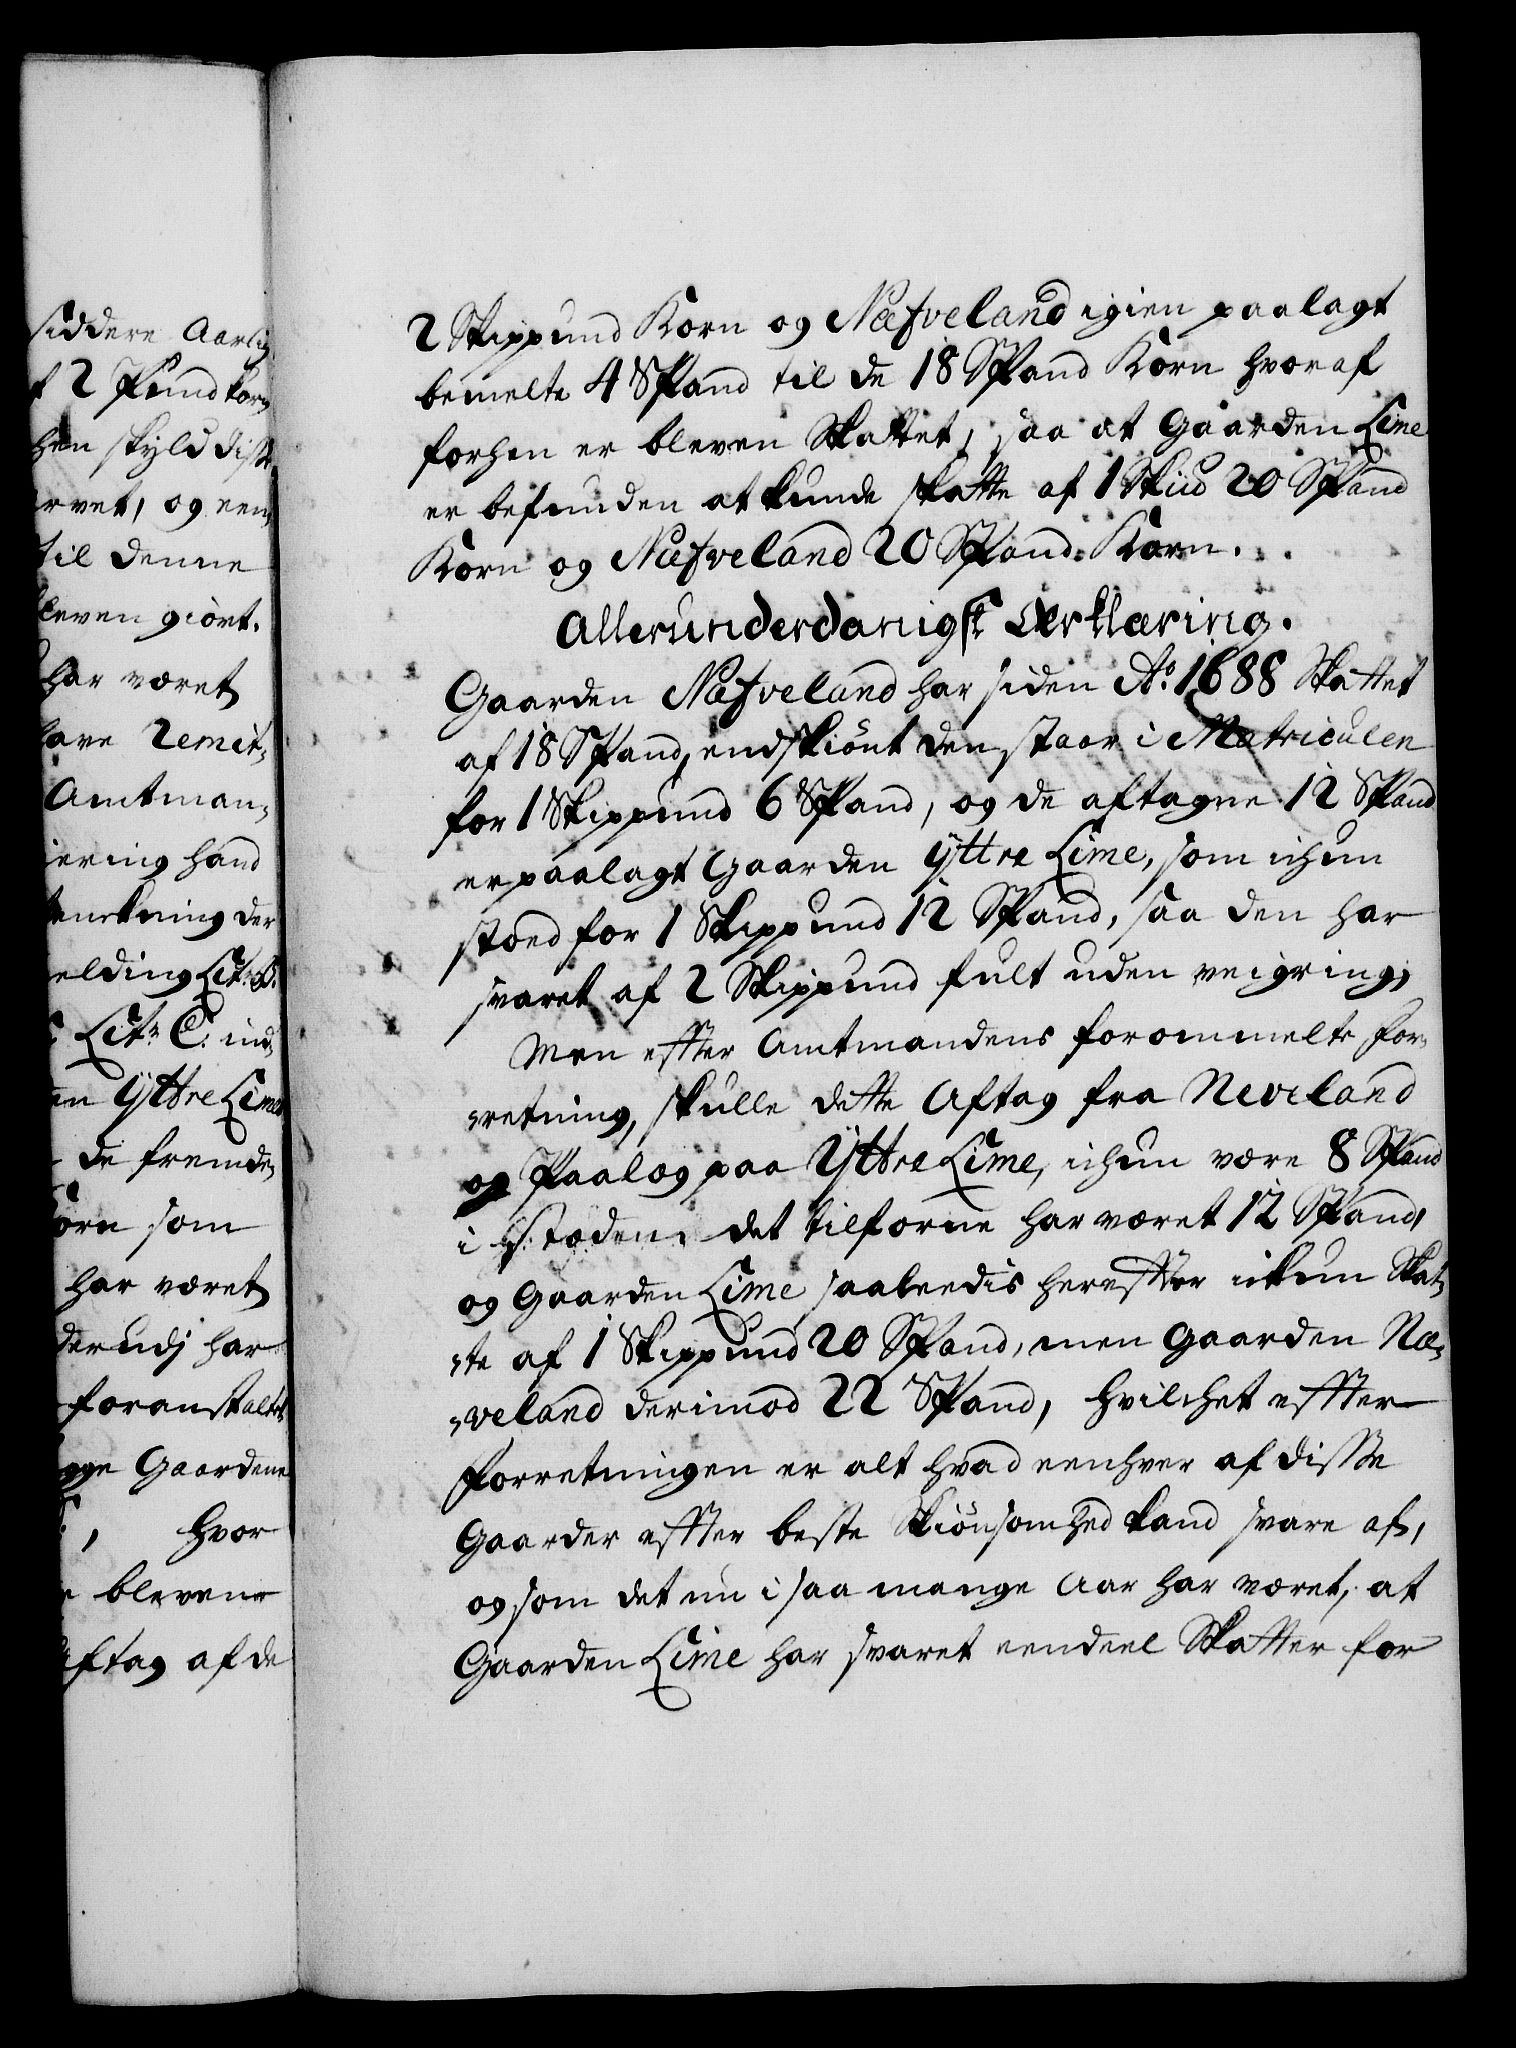 siddere Aarlig
f 2 Pund korn
hen skyld diste
rvet, og een
til denne
leven giort.
har været
lave Remit-
Amtman-
iering hand
tenckning der
elding Litr: B.
Litr: C. ind-
en Ÿttre Lime
de fremde
orn som
har været
derudj har
foranstaltet
gge Gaardene
, hvor
e blevene
Aftag af de
2 Skippund Korn og Næfveland igien paalagt
bemelte 4 Spand til de 18 Spand Korn hvoraf
forhen er bleven Skattet, saa at Gaarden Lime
er befunden at kunde skatte af 1 Skud 20 Spand
Korn og Næfveland 20 Spand Korn.
Allerunderdanigst Erklæring.
Gaarden Næfveland har siden Ao. 1688 Skattet
af 18 Spand, endskiönt den staar i Matriculen
for 1 Skippund 6 Spand, og de aftagne 12 Spand
er paalagt Gaarden Ÿttre Lime, som ichun
stoed for 1 Skippund 12 Spand, saa den har
svaret af 2 Skippund fult uden veigring;
Men effter Amtmandens forommelte for-
-retning, skulle dette Aftag fra Neveland
og Paalog paa Ÿttre Lime, ichun være 8 Spand
i Stæden det tilforne har været 12 Spand,
og Gaarden Lime saaleedis hereffter ickun Skat-
-te af 1 Skippund 20 Spand, men Gaarden Næ-
-veland derimod 22 Spand, hvilchet effter
Forretningen er alt hvad eenhver af disse
Gaarder effter beste Skiönsomhed kand svare af,
og som det nu i saa mange Aar har været, at
Gaarden Lime har svaret eendeel Skatter for